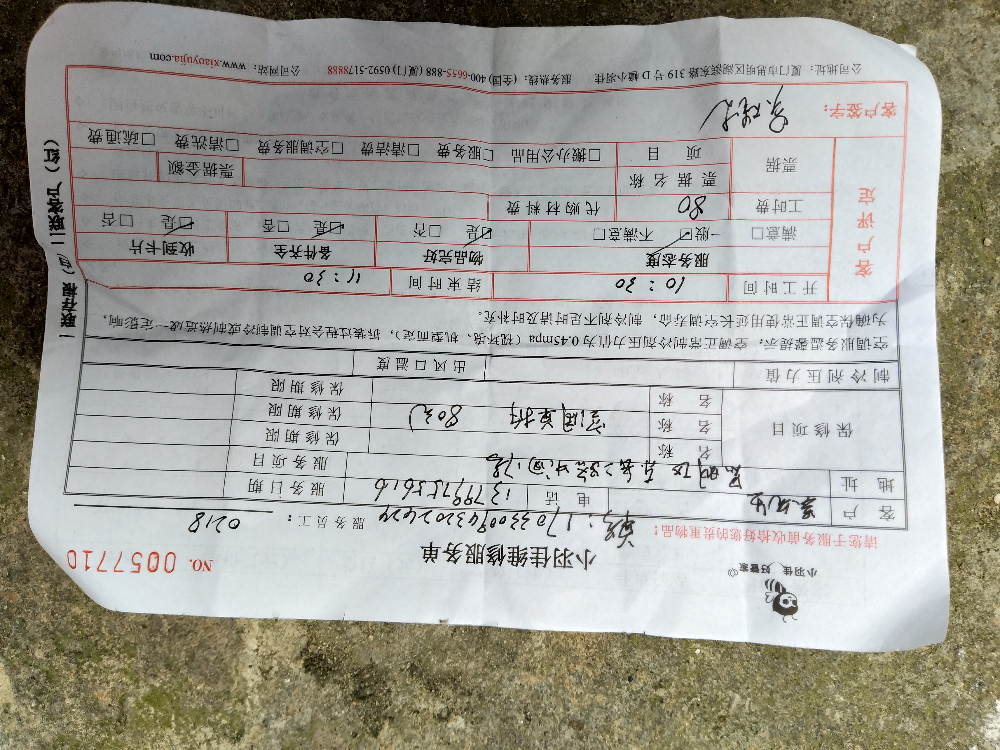 小羽佳 好管家
小羽佳维修服务单
NO. 0057710
请您于服务前收拾好您的贵重物品！
服务员工： 0218
客 户
电 话 13799755616
服务日期
地 址
服务项目
保修项目
名 称
保修期限
名 称 空调单拆 80元
保修期限
名 称
保修期限
制冷剂压力值
出风口温度
空调服务温馨提示：空调正常制冷剂压力值为0.45mpa（视环境、机型而定），拆装过程会对空调制冷或制热造成一定影响，
为确保空调正常使用延长空调寿命，制冷剂不足时请及时补充。
开工时间 10：30 结束时间 11：30
客户评定
服务态度 物品完好 备件齐全 收到卡片
满意□ 一般□ 不满意□ 是□ 否□ 是□ 否□ 是□ 否□
工时费 80 代购材料费
票据
票据名称 票据金额
项 目 □搬办公用品 □服务费 □清洁费 □空调服务费 □清洗费 □疏通费
客户签字：
公司地址：厦门市思明区湖滨东路319号D幢小羽佳 服务热线：(全国) 400-6655-888 (厦门) 0592-5178888 公司网站：www.xiaoyujia.com
一联存根（白）二联客户（红）